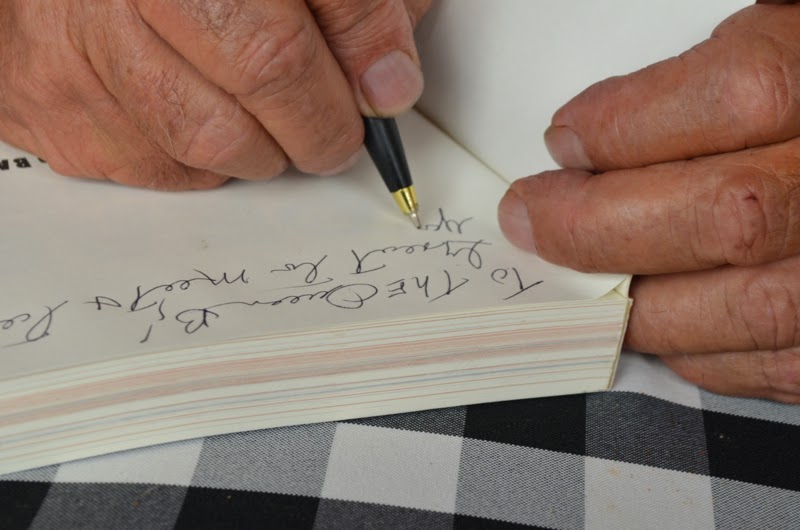 To The Queen B's
Great to meet &